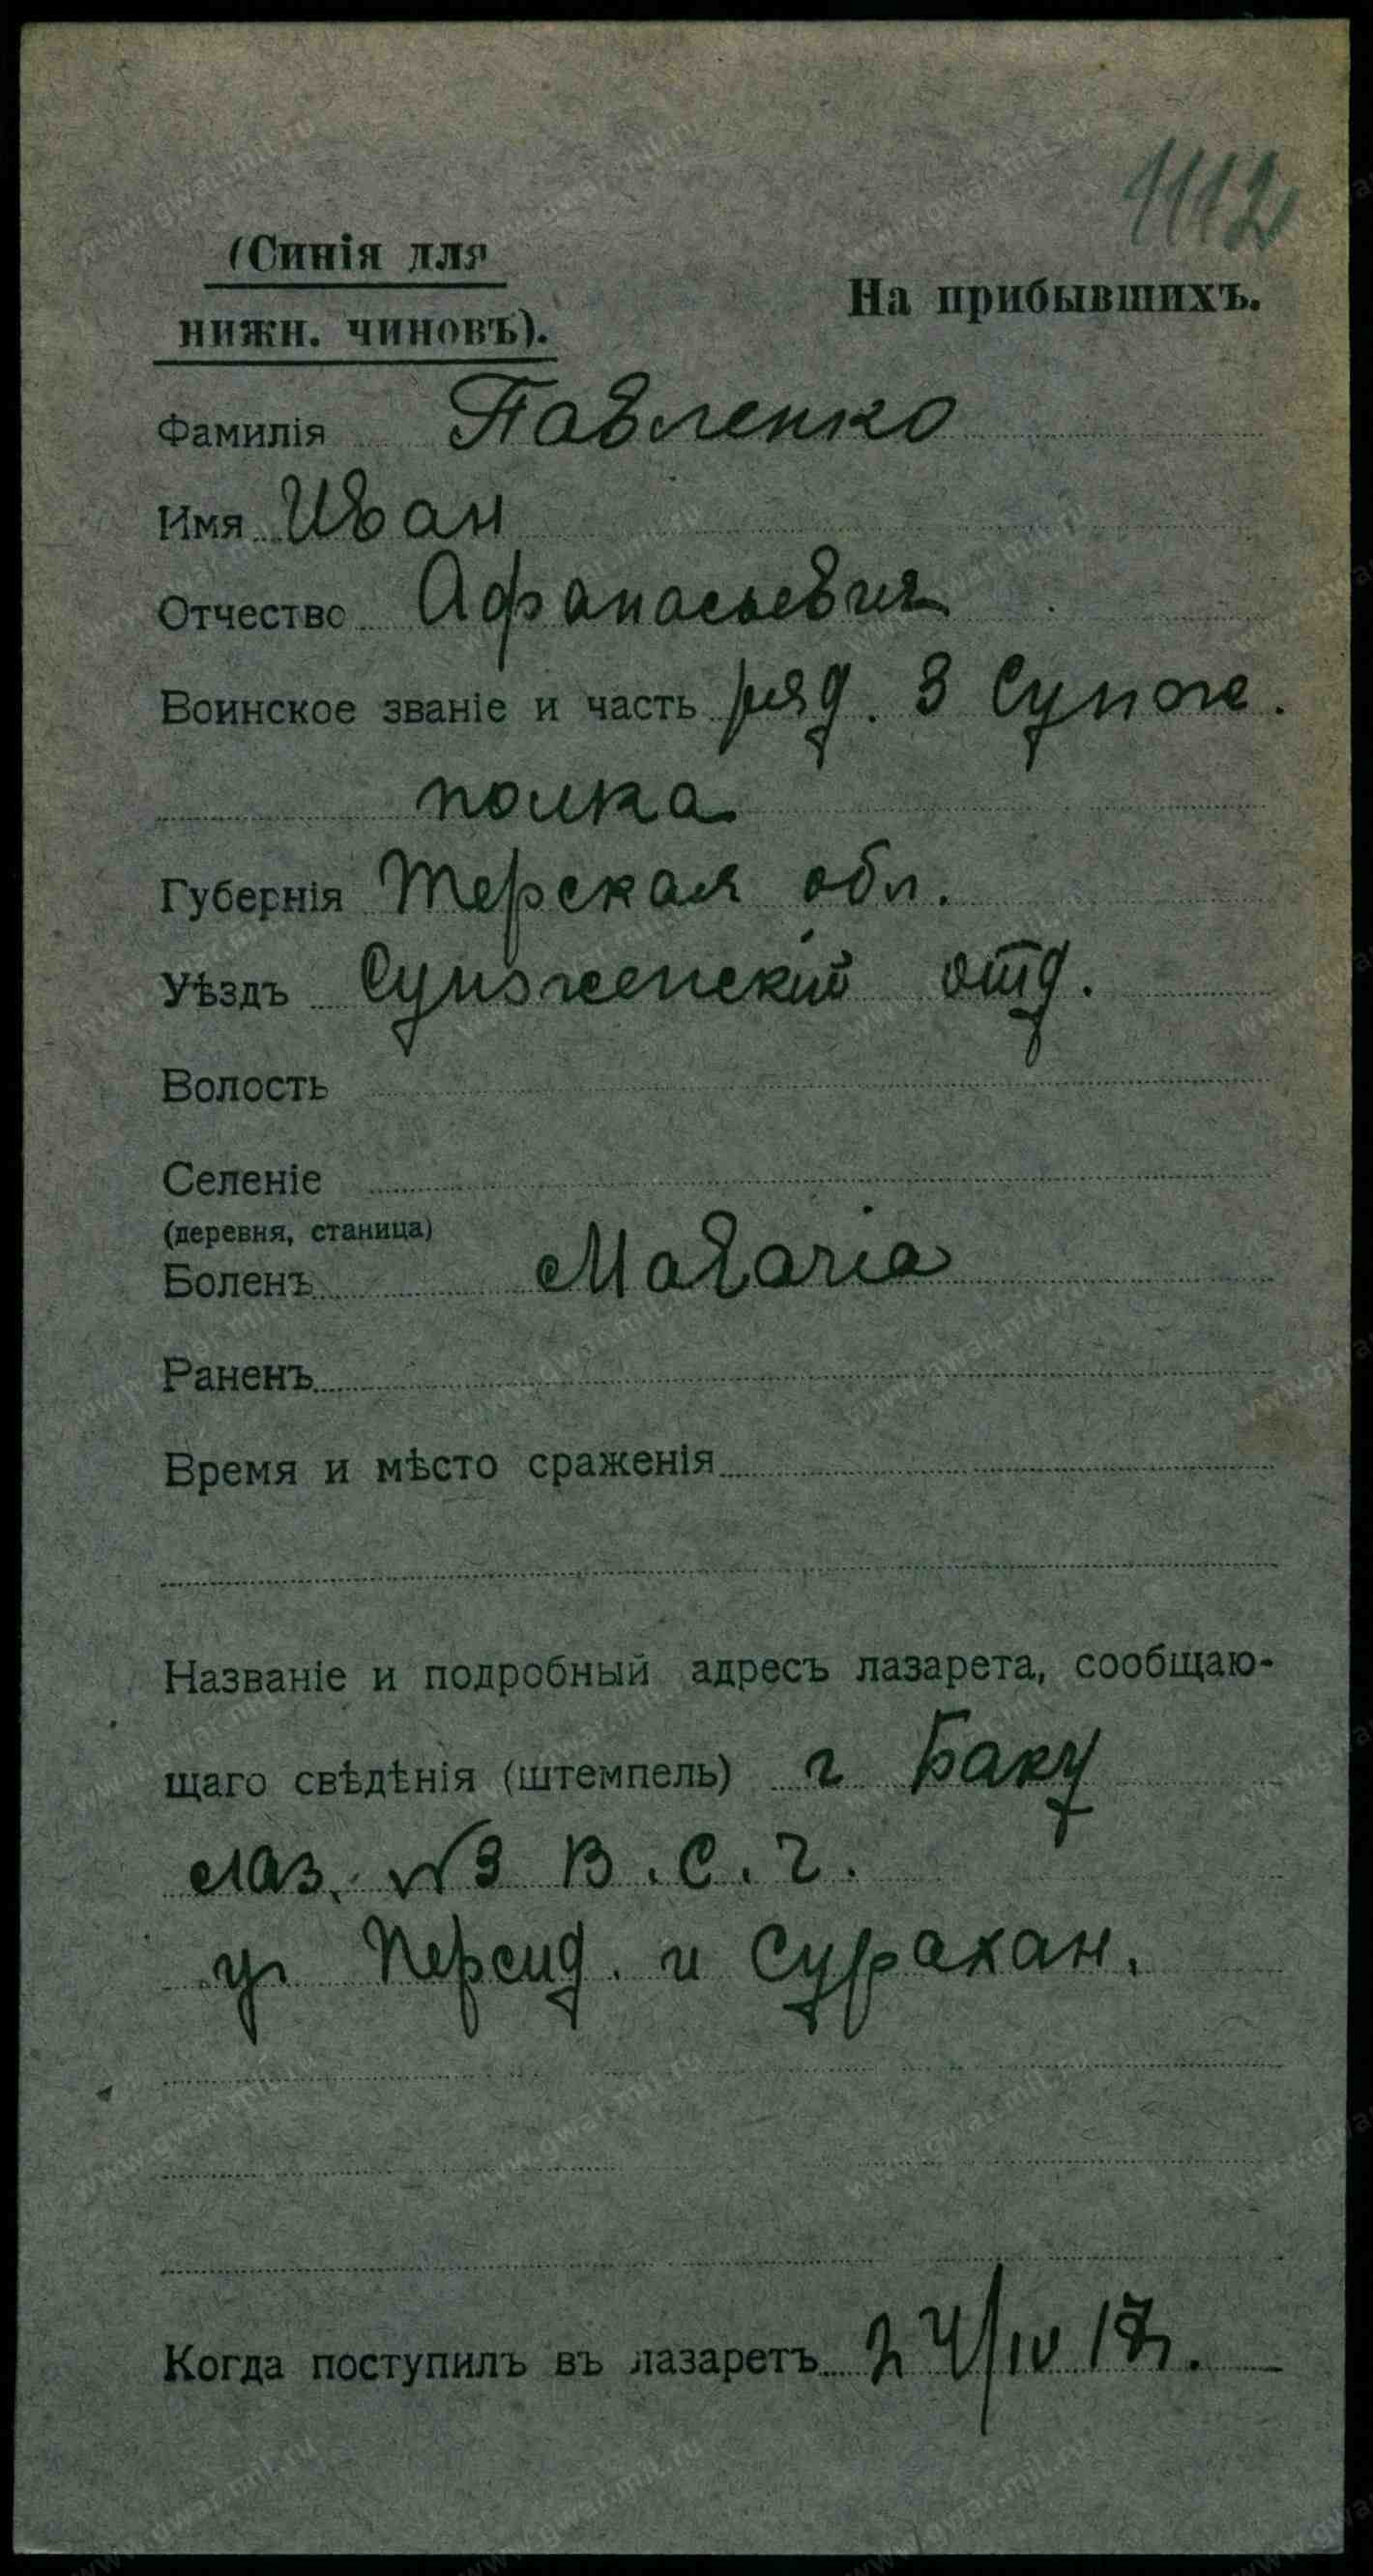 1112
(Синія для
нижн. чиновъ).
На прибывшихъ.
Фамилія Павленко
Имя Иван
Отчество Афанасьевич
Воинское званіе и часть ряд. 3 Сунж.
полка
Губернія Терская обл.
Уѣздъ Сунженскій отд.
Волость
Селеніе
(деревня, станица)
Боленъ Malaria
Раненъ
Время и мѣсто сраженія
Названіе и подробный адресъ лазарета, сообщаю-
щаго свѣдѣнія (штемпель) г Баку
лаз. №3 В. С. Г.
уг Персид. и Сурахан.
Когда поступилъ въ лазаретъ 24/IV 17г.
www.gwar.mil.ru